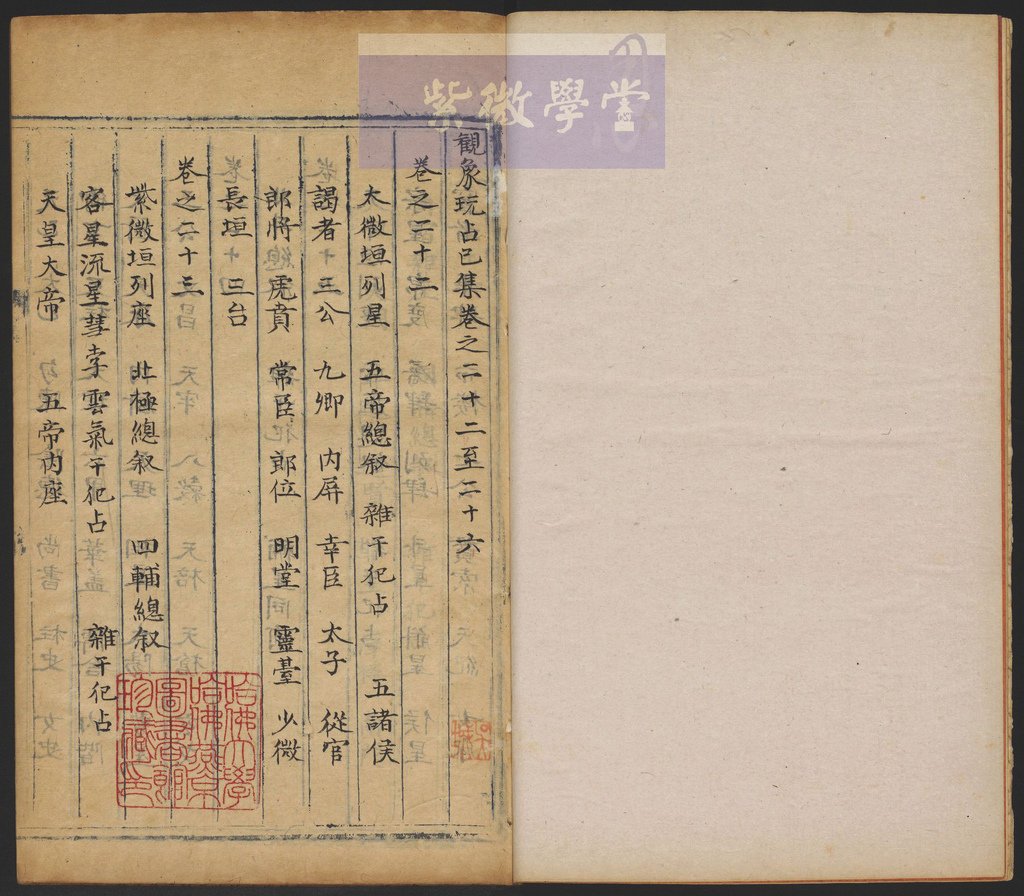 紫微學堂
観象玩占己集卷之二十二至二十六
卷之二十二
太微垣列星 五帝總叙 雜干犯占 五諸侯
謁者 三公 九卿 內屏 幸臣 太子 從官
郎將 虎賁 常臣 郎位 明堂 靈臺 少微
長垣 三台
卷之二十三
紫微垣列座 北極總叙 四輔總叙
客星流星彗孛雲氣干犯占 雜干犯占
天皇大帝 五帝內座
哈佛大學
哈佛燕京
圖書館
珍藏印